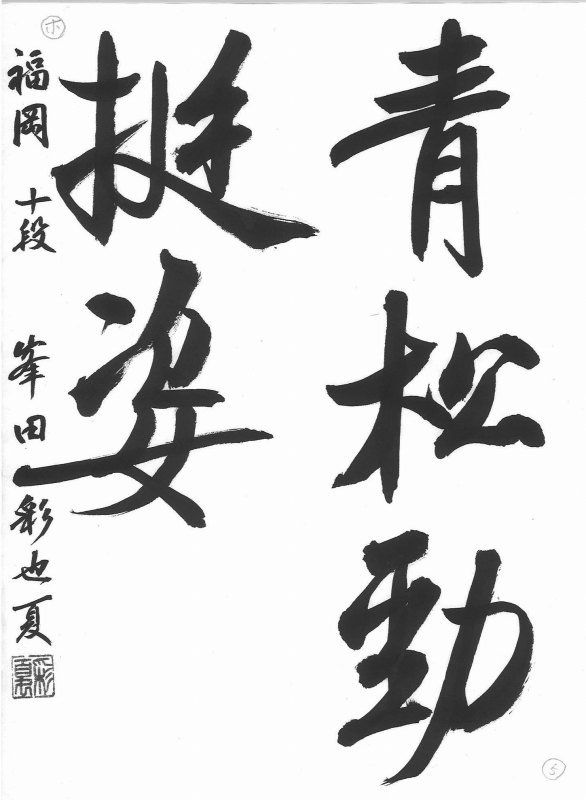 青松勁
挺姿
福岡 十段 峯田彩也夏
彩夏
ホ
5